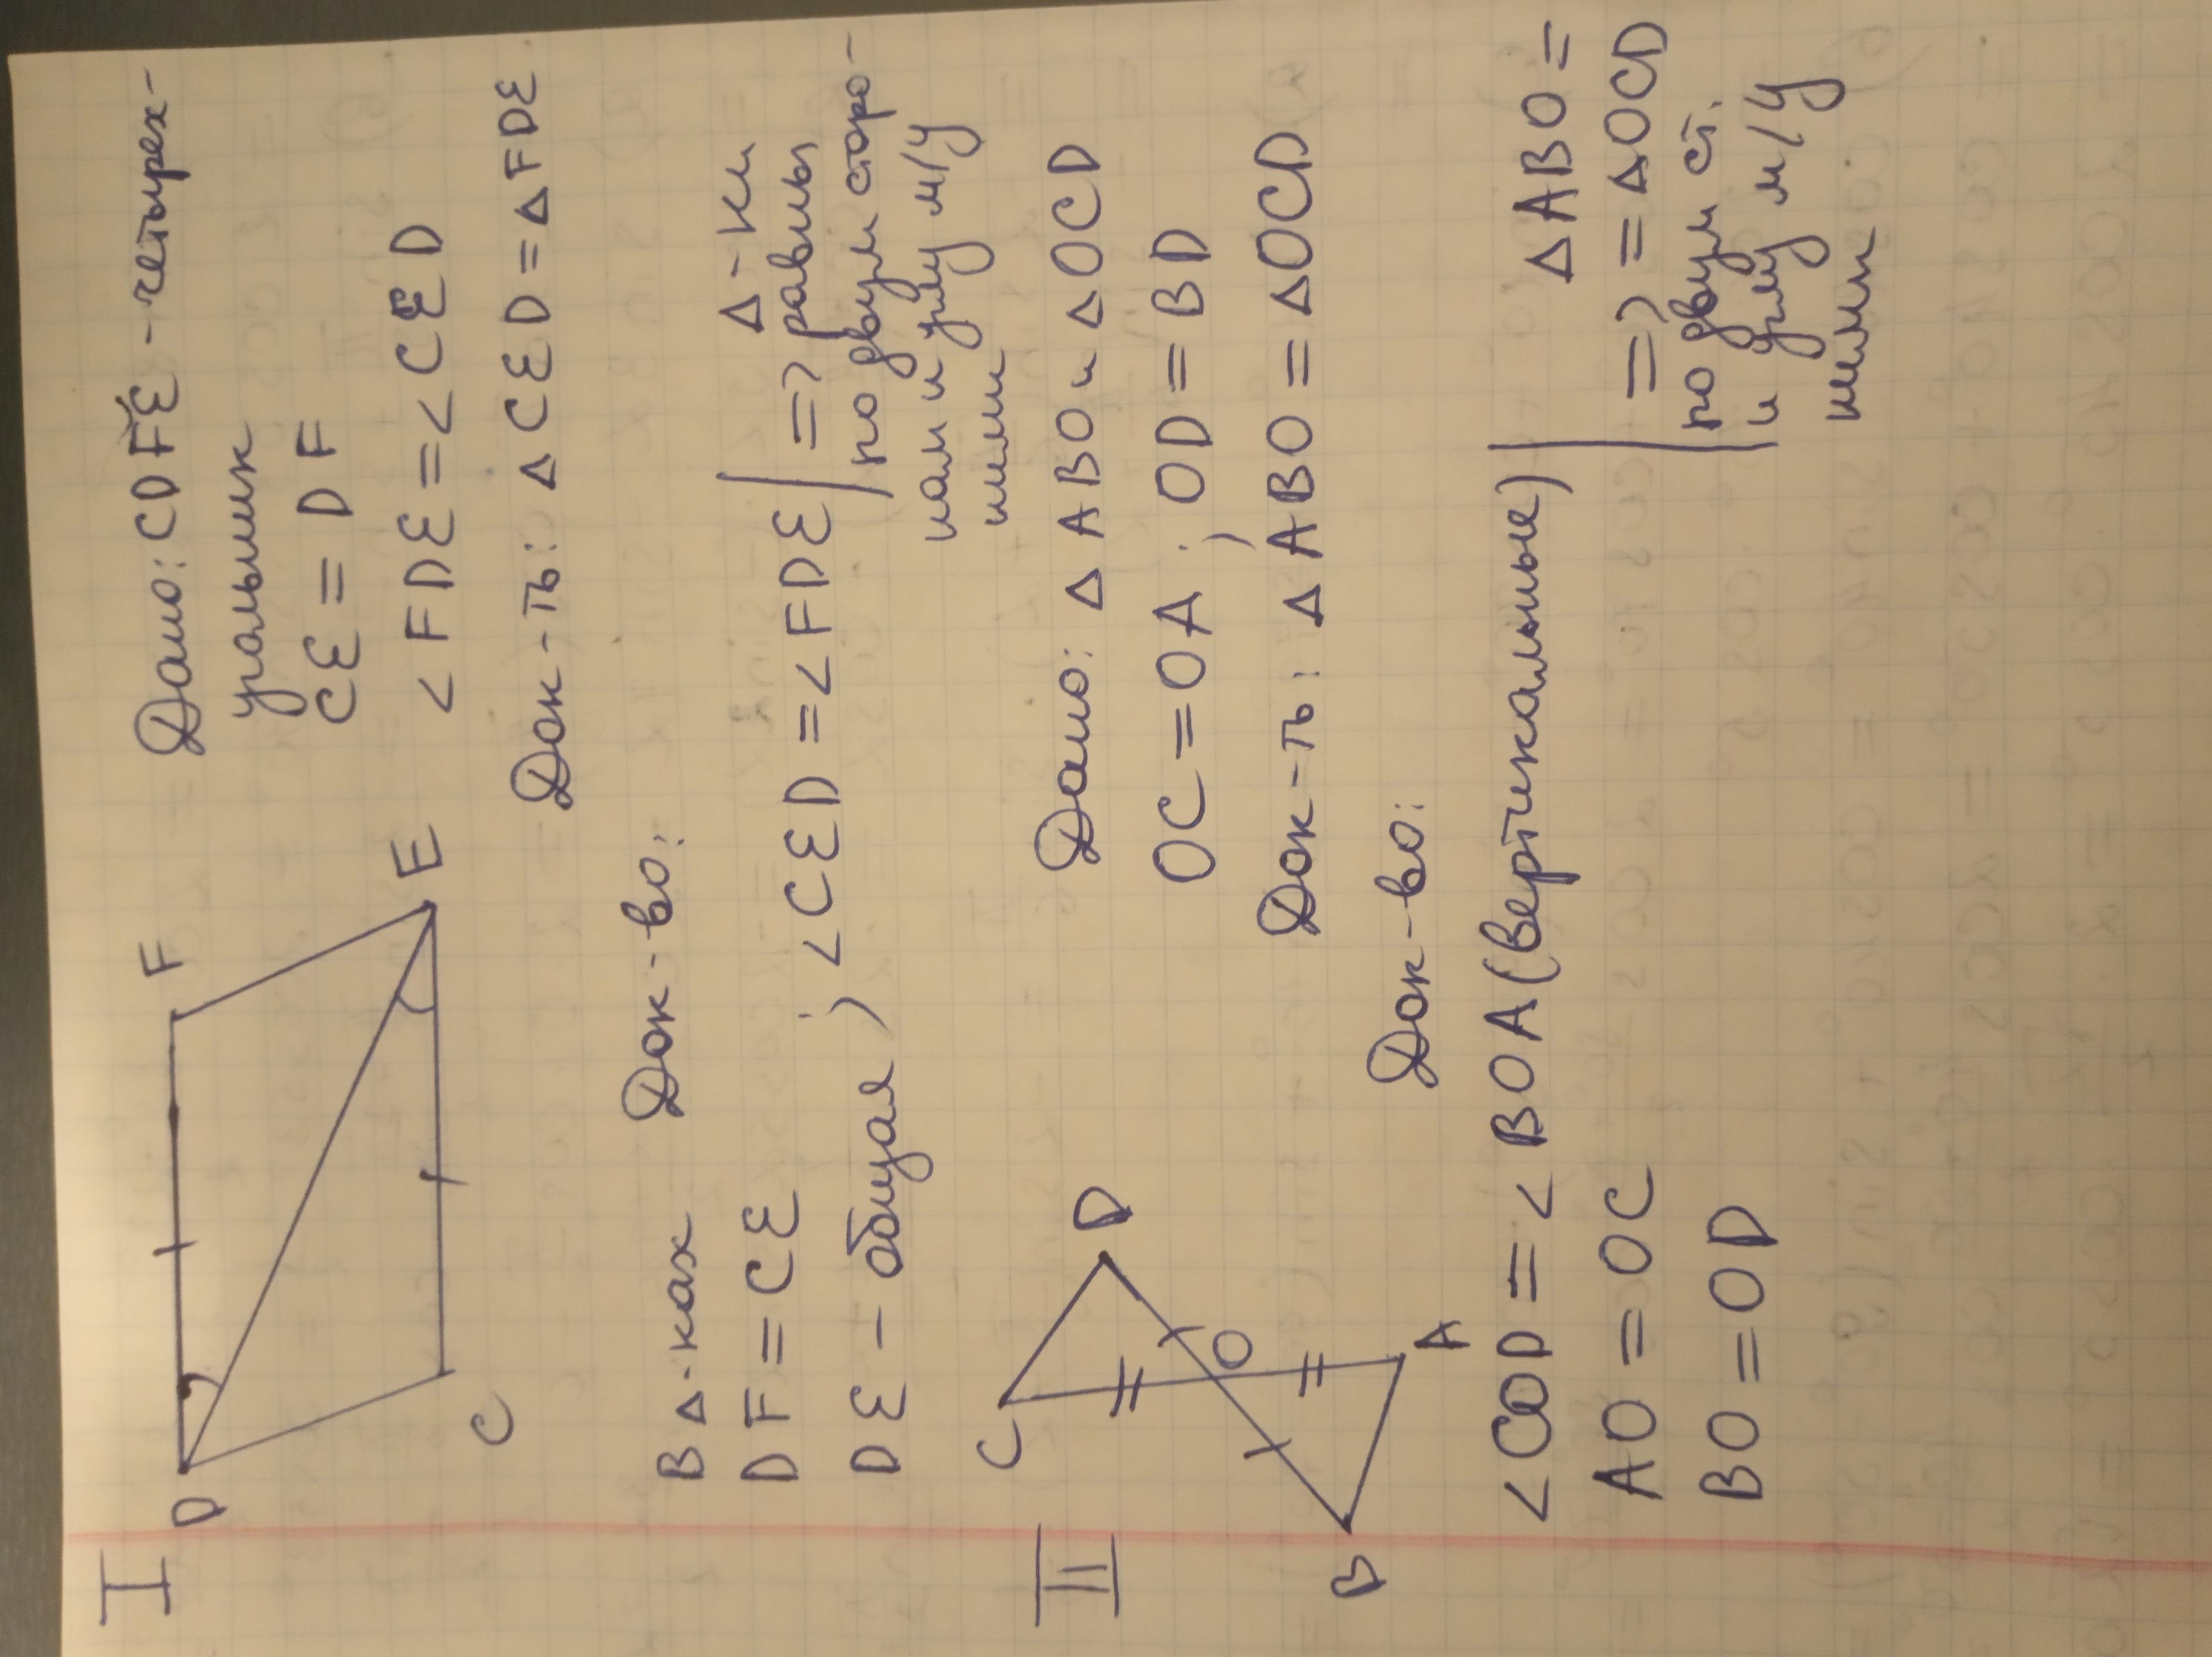 I
D
F
E
C
Дано: CDFE - четырех-
угольник
CE = DF
∠FDE = ∠CED
Док-ть: ΔCED = ΔFDE
Док-во:
В Δ-ках
DF = CE
DE - общая ; ∠CED = ∠FDE | => Δ-ки
равны
по двум сторо-
нам и углу м/у
ними
II
C
D
O
B
A
Дано: ΔABO и ΔOCD
OC = OA ; OD = BD
Док-ть: ΔABO = ΔOCD
Док-во:
∠COD = ∠BOA (вертикальные)
AO = OC
BO = OD
| => ΔABO =
= ΔOCD
по двум ст.
и углу м/у
ними